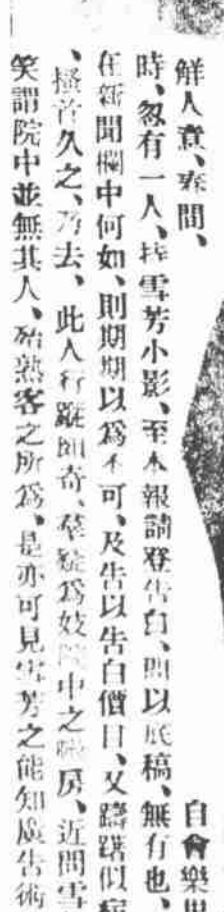 鮮人意、春間、
自會樂里
時、忽有一人、持雪芳小影、至本報請登告白、問以底稿、無有也、
在新聞欄中何如、則期期以爲不可、及告以告白價目、又躊躇似
、搔首久之、乃去、此人行蹤頗奇、羣疑爲妓院中之賬房、近問雪
笑謂院中並無其人、殆熟客之所爲、是亦可見雪芳之能知廣告術